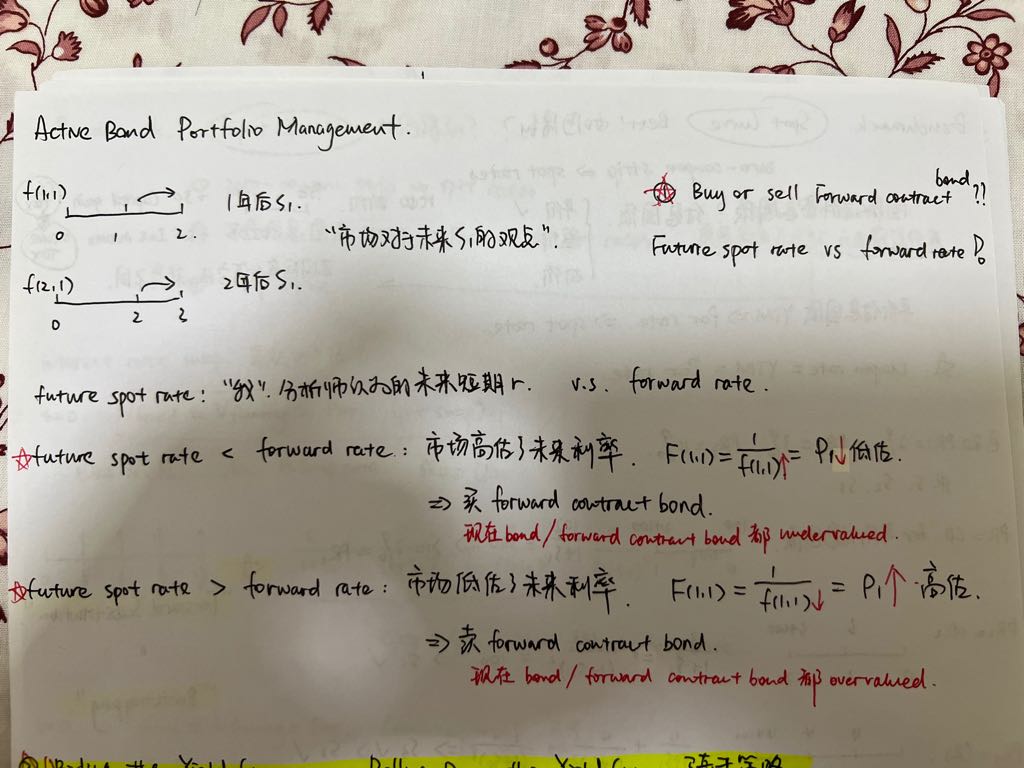 Active Bond Portfolio Management.
f(1,1)
0 1 2.
1年后S₁.
"市场对于未来S₁的观点".
f(2,1)
0 2 3
2年后S₁.
Buy or sell Forward contract bond ??
Future spot rate vs forward rate ?
future spot rate: "我". 分析师认为的未来短期r. v.s. forward rate.
☆future spot rate < forward rate: 市场高估了未来利率. F(1,1) = 1/f(1,1)↑ = P₁↓低估.
⇒ 买 forward contract bond.
现在bond/forward contract bond 都 undervalued.
☆future spot rate > forward rate: 市场低估了未来利率. F(1,1) = 1/f(1,1)↓ = P₁↑ 高估.
⇒ 卖 forward contract bond.
现在 bond / forward contract bond 都 overvalued.
the Yield the Yield